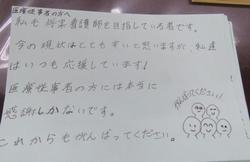 医療従事者の方へ
私も将来看護師を目指している者です。
今の現状はとても辛いと思いますが、私達
はいつも応援しています!
医療従事者の方には本当に
感謝しかないです。
これからもがんばってください。
頑張ってください!